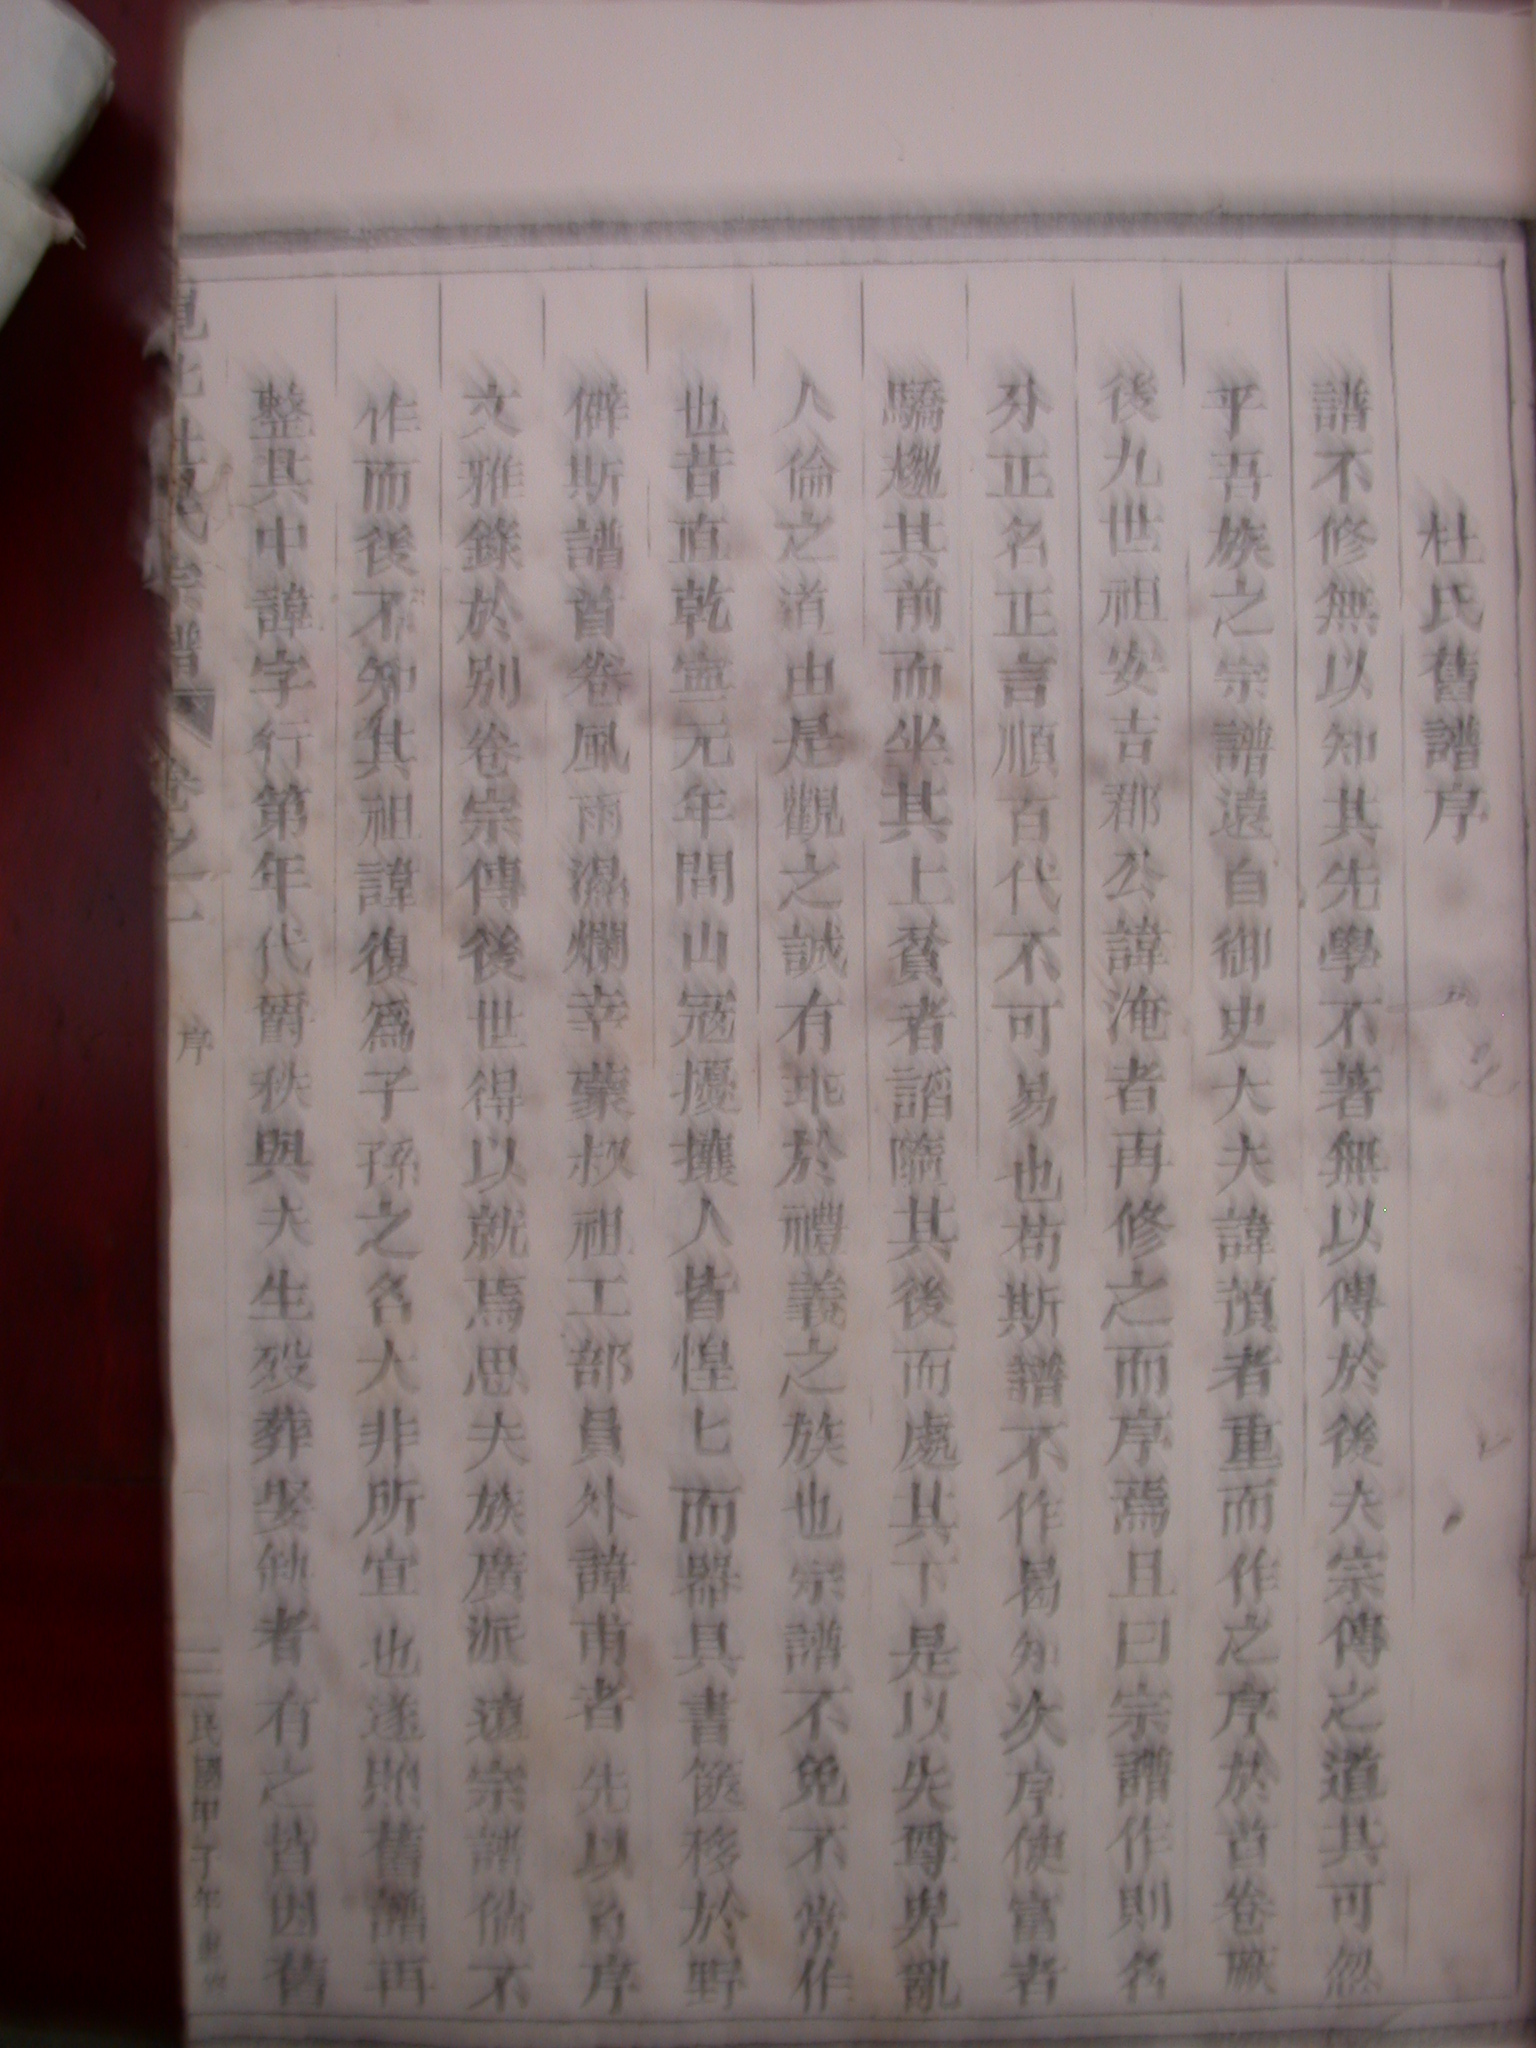 杜氏舊譜序
譜不修無以知其先學不著無以傳於後夫宗傳之道其可忽
乎吾族之宗譜遠自御史大夫諱者重而作之序於首卷厥
後九世祖安吉郡公諱淹者再修之而序焉且曰宗譜作則名
分正名正言順百代不可易也苟斯譜不作曷知次序使富者
驕趨其前而坐其上貧者謟隨其後而處其下是以失尊卑亂
人倫之道由是觀之誠有乖於禮義之族也宗譜不免不常作
也昔直乾寍元年間山冦擾攘人皆惶匕而器具書篋移於野
僻斯譜首卷風雨濕爛幸蒙叔祖工部員外諱甫者先以首序
文雅錄於別卷宗傳後世得以就焉思夫族廣派遠宗譜倘不
作而後不知其祖諱復爲子孫之名大非所宜也遂照舊譜再
整其中諱字行第年代爵秩與夫生歿葬娶缺者有之皆因舊
杜氏宗譜 卷之一 序 民國甲子年重